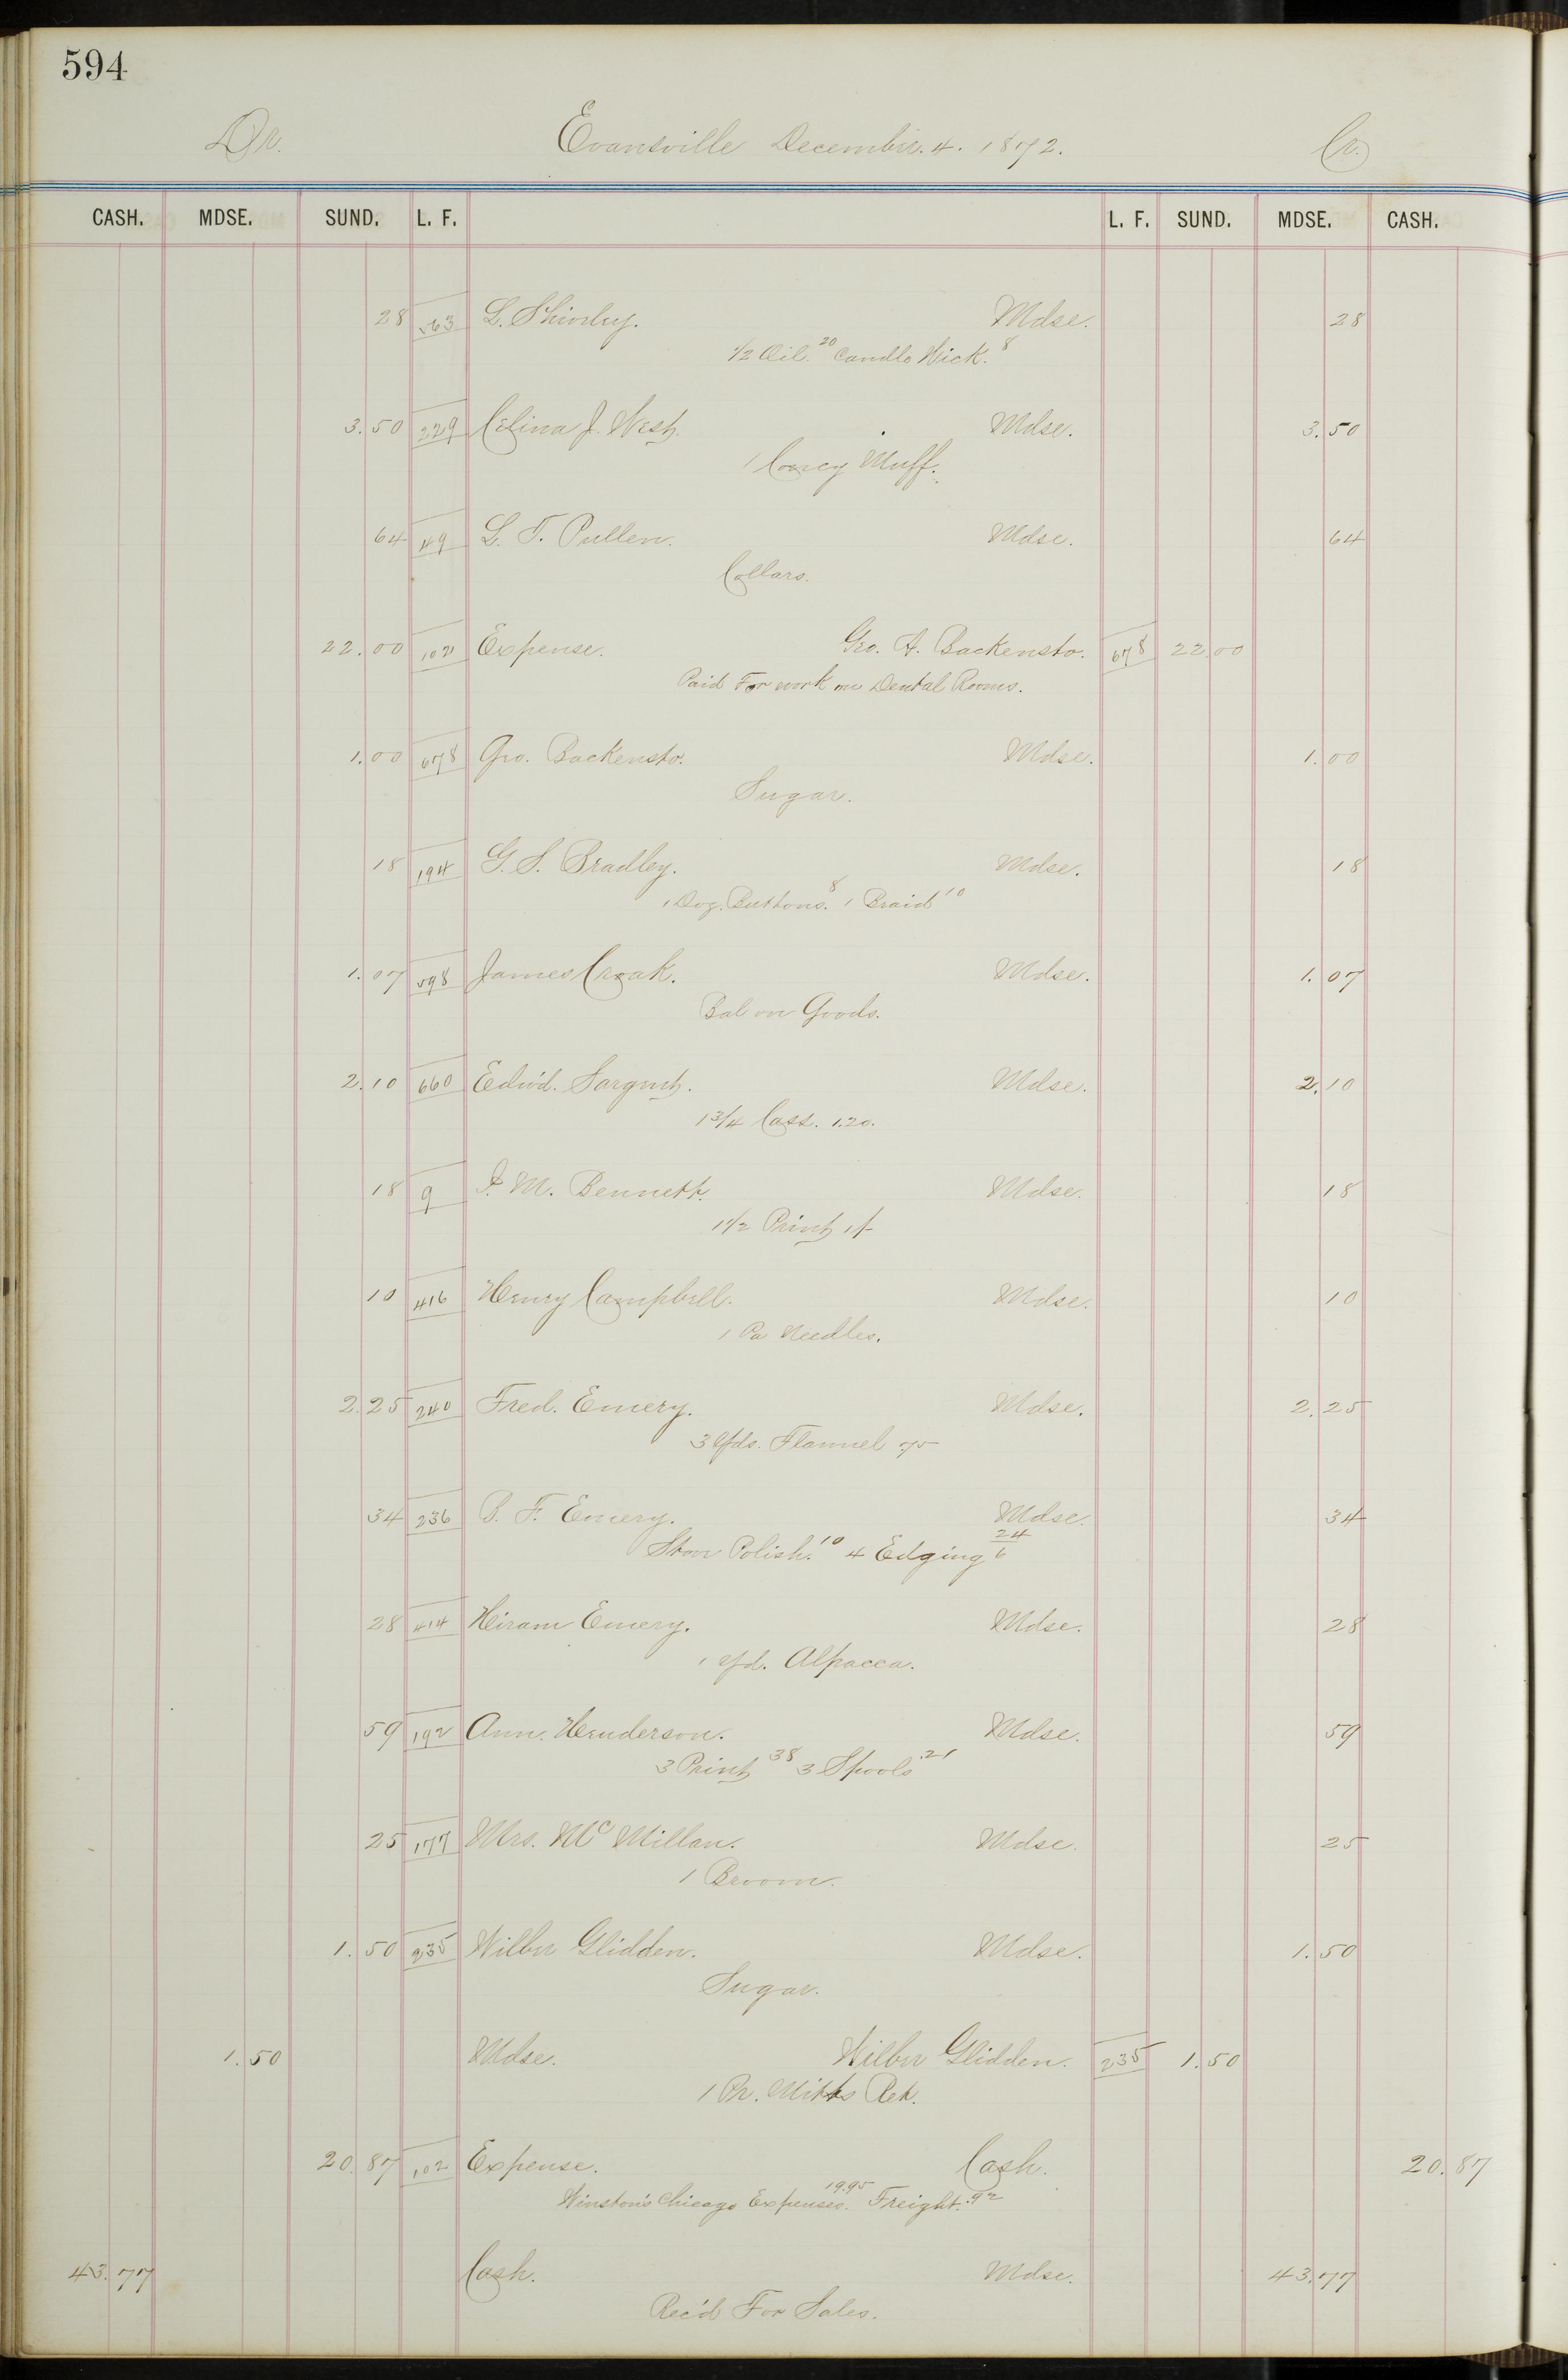 594
Dr. Evansville December. 4. 1872. Cr.
CASH. MDSE. SUND. L. F. L. F. SUND. MDSE. CASH.
28 563 L. Shively. Mdse. 28
1/2 Oil. 20 Candle Wick. 8
3.50 229 Celina J. West. Mdse. 3.50
1 Muff.
64 49 L. T. Pullen. Mdse. 64
Collars.
22.00 102 Expense. Geo. A. Backensto. 678 22.00
Paid For work on Dental Rooms.
1.00 678 Geo. Backensto. Mdse. 1.00
Sugar.
18 194 G. S. Bradley. Mdse. 18
1 Doz. Buttons. 8 1 Braid 10
1.07 598 James Croak. Mdse. 1.07
Bal on Goods.
2.10 660 Edw'd. Sargent. Mdse. 2.10
1 3/4 Cass. 1.20.
18 9 I. M. Bennett. Mdse. 18
1 1/2 Print 1/-
10 416 Henry Campbell. Mdse. 10
1 Pa Needles.
2.25 240 Fred. Emery. Mdse. 2.25
3 Yds. Flannel 75
34 236 B. F. Emery. Mdse. 34
Stove Polish. 10 4 Edging 24 6
28 414 Hiram Emery. Mdse. 28
1 Yd. Alpacca.
59 192 Ann. Henderson. Mdse. 59
3 Print 38 3 Spools .21
25 177 Mrs. Mc Millan. Mdse. 25
1 Broom.
1.50 235 Wilber Glidden. Mdse. 1.50
Sugar.
1.50 Mdse. Wilber Glidden. 235 1.50
1 Pr. Mitts Ret.
20.87 102 Expense. Cash. 20.87
Winston's Chicago Expenses. 19.95 Freight. .92
43.77 Cash. Mdse. 43.77
Rec'd For Sales.